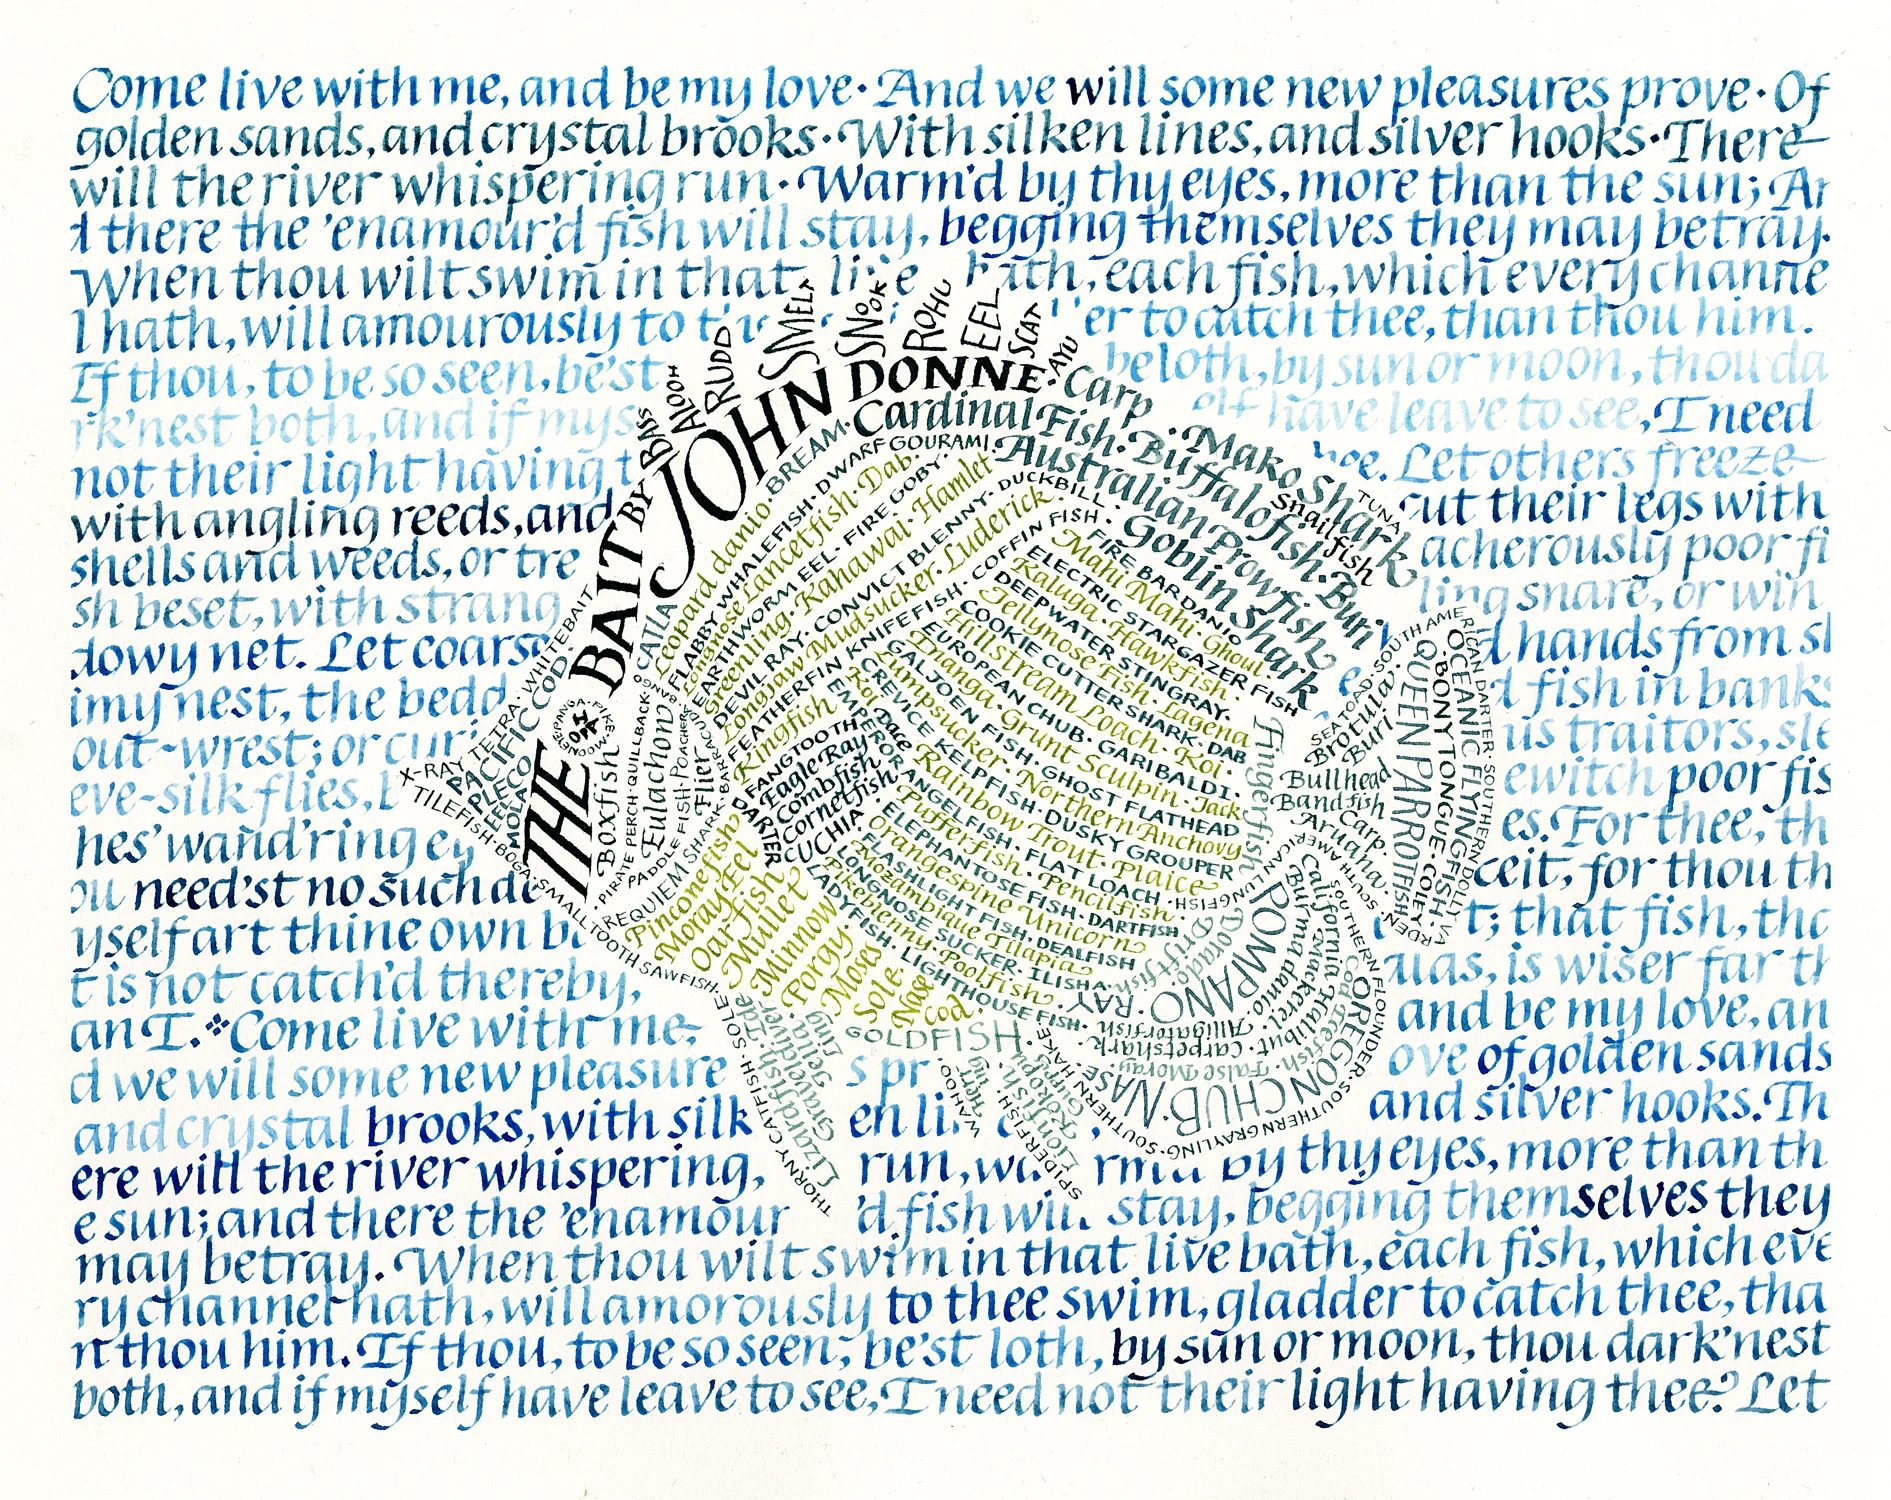 Come live with me, and be my love· And we will some new pleasures prove· Of
golden sands, and crystal brooks· With silken lines, and silver hooks· There
will the river whispering run· Warm'd by thy eyes, more than the sun; An
d there the 'enamour'd fish will stay, begging themselves they may betray.
When thou wilt swim in that live bath, each fish, which every channe
l hath, will amourously to er to catch thee, than thou him.
If thou, to be so seen, be'st beloth, by sun or moon, thou da
rk'nest both, and if mys elf have leave to see, I need
not their light having t hee. Let others freeze
with angling reeds, and cut their legs with
shells and weeds, or tre acherously poor fi
sh beset, with strang ling snare, or win
dowy net. Let coarse hands from sl
imy nest, the bedd d fish in banks
out-wrest; or curi us traitors, sle
eve-silk flies, b ewitch poor fis
hes' wand'ring ey es. For thee, th
ou need'st no such de ceit, for thou th
yself art thine own b t; that fish, tha
t is not catch'd thereby, is wiser far th
an I. Come live with me, and be my love, an
d we will some new pleasure s pr ove of golden sands
and crystal brooks, with silk en li and silver hooks. Th
ere will the river whispering, run, wa rm by thy eyes, more than th
e sun; and there the 'enamour 'd fish will stay, begging themselves they
may betray. When thou wilt swim in that live bath, each fish, which eve
ry channel hath, will amorously to thee swim, gladder to catch thee, tha
n thou him. If thou, to be so seen, be'st loth, by sun or moon, thou dark'nest
both, and if myself have leave to see, I need not their light having thee? Let
THE BAIT BY JOHN DONNE
BASS
ALOOH
RUDD
SMELT
SNOOK
ROHU
EEL
SCAT
AYU
Carp
Mako Shark
TUNA
Snailfish
Cardinal Fish · Buffalofish · Buri
BREAM · DWARF GOURAMI · Australian Prowfish
Goblin Shark
X-RAY TETRA · WHITEBAIT
PACIFIC COD
PLECO
MOLA
TILEFISH · BOGA · SMALLTOOTH SAWFISH
CATLA
Leopard danio
FLABBY WHALEFISH
Longnose Lancetfish · Dab
EARTHWORM EEL · FIRE GOBY
Greenling · Kahawai · Hamlet
DEVIL RAY · CONVICT BLENNY · DUCKBILL
Longjaw Mudsucker · Luderick
FEATHERFIN KNIFEFISH · COFFIN FISH
Kingfish
FIRE BAR DANIO
Mahi Mahi · Ghoul
ELECTRIC STARGAZER FISH
Kaluga · Hawkfish
DEEPWATER STINGRAY
Jellynose Fish · Lagena
COOKIE CUTTER SHARK · DAB
Hillstream Loach · Koi
EUROPEAN CHUB · GARIBALDI
Enanga · Grunt Sculpin · Jack
GALJOEN FISH · GHOST FLATHEAD
Lumpsucker · Northern Anchovy
CREVICE KELPFISH · DUSKY GROUPER
Rainbow Trout · Plaice
EMPEROR ANGELFISH · FLAT LOACH · Pencilfish
Pufferfish
ELEPHANTOSE FISH · DARTFISH
Orangespine Unicorn
FLASHLIGHT FISH · DEALFISH
Mozambique Tilapia
LONGNOSE SUCKER · ILLISHA
Pikeblenny · Poolfish
LADYFISH · LIGHTHOUSE FISH
FANGTOOTH
Eagle Ray
Combfish
Cornetfish
CUCHIA
DARTER
Boxfish
PIRATE PERCH · QUILLBACK
Eulachon
PADDLE FISH · POACHER
Flier
REQUIEM SHARK · BARRACUDA
Pineconefish
Moray Eel
Oarfish
Mullet
Minnow
Porgy
Moses Sole
Nase
Cod
GOLDFISH
THORNY CATFISH · SOLE
Lizardfish · Ide
Graveldiver
Zelta
Ling
WAHOO
SPIDERFISH
Lionfish
SOUTHERN HAKE
Fingerfish
POMPANO
RAY
Dorado
Driftfish
Alligatorfish
Carpetshark
False Moray
NASE · CHUB
OREGON CHUB
SOUTHERN GRAYLING
SOUTHERN FLOUNDER
Burma danio
California Halibut
Mackerel
SEA TOAD · SOUTH AMERICAN DARTER · SOUTHERN DOLLY VARDEN
Brotula
Buri
Bullhead
Bandfish
Carp
Aruana
QUEEN PARROTFISH
BONY TONGUE · COLEY
OCEANIC FLYINGFISH